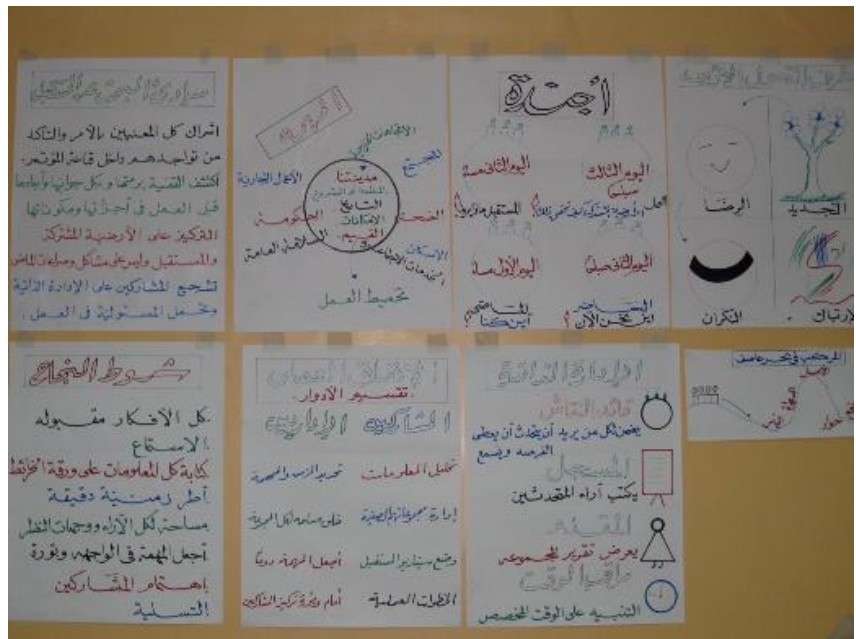 مبادئ البحث عن المستقبل
اشراك كل المعنيين بالأمر والتأكد
من تواجدهم داخل قاعة المؤتمر.
أكتشف القضية برمتها وبكل جوانبها وأبعادها
قبل العمل فى أجزائها ومكوناتها
التركيز على الأرضية المشتركة
والمستقبل وليس على مشاكل وصراعات الماضى
تشجيع المشاركين على الإدارة الذاتية
وتحمل المسئولية فى العمل.
المجتمع
الأعمال التجارية
مدينتنا
التاريخ
الامكانات
القيم
الصحة
الحكومة
الاسكان
السلامة العامة
تخطيط العمل
أجندة
اليوم الثالث
صباحى
اليوم الثانى مساء
اليوم الثانى صباحى
اليوم الأول مساء
الحاضر
أين نحن الآن؟
الماضى
أين كنا؟
التجديد
الرضا
الإرتباك
النكران
شروط النجاح
كل الأفكار مقبوله
الاستماع
كتابة كل المعلومات على ورقة الخرائط
أطر زمنية دقيقة
مساحة لكل الآراء ووجهات النظر
أجعل المهمة فى الواجهه وبؤرة
إهتمام المشاركين
التسلية
تقسيم الأدوار.
المشاركين
الإداريين
تحليل المعلومات
تحديد الزمن والمهمة
إدارة مجموعاتهم الصغيرة
وضع سيناريو المستقبل
الخطوات العملية
الإدارة الذاتية
قائد النقاش
يضمن لكل من يريد أن يتحدث أن يعطى
الفرصه ويسمع
المسجل
يكتب آراء المتحدثين
المقدم
يعرض تقرير المجموعه
مراقب الوقت
التنبيه على الوقت المخصص
الأمل
حوار